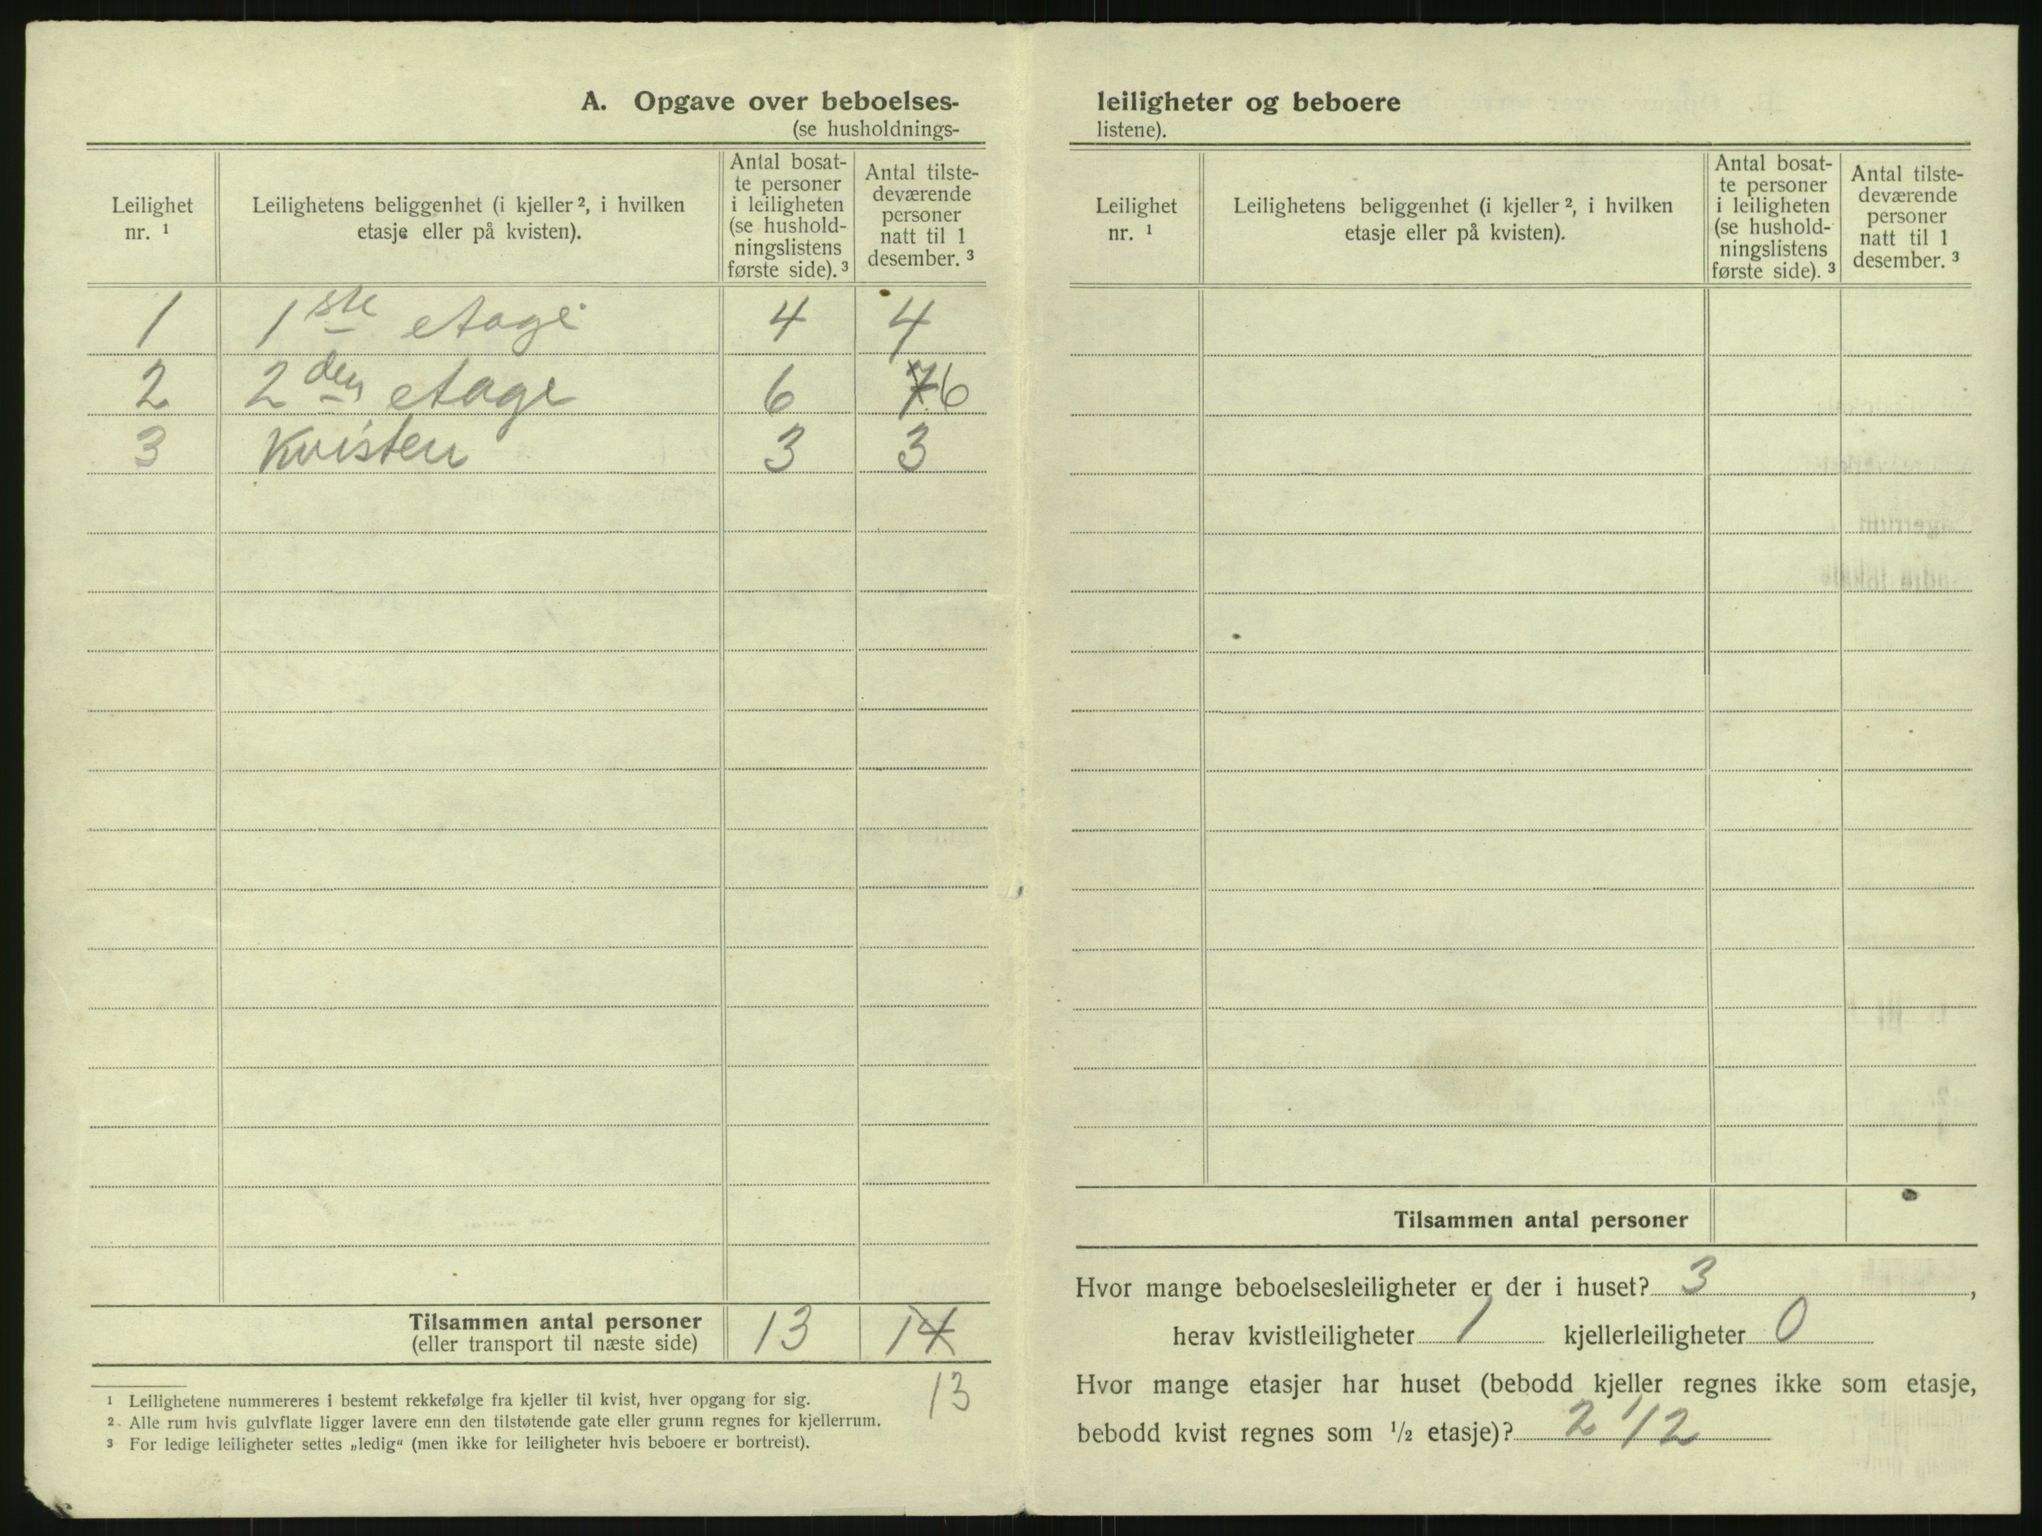 A. Opgave over beboelses-
(se husholdnings-
Leilighet nr. ¹
Leilighetens beliggenhet (i kjeller ², i hvilken etasje eller på kvisten).
Antal bosat-
te personer
i leiligheten
(se hushold-
ningslistens
første side). ³
Antal tilste-
deværende
personer
natt til 1
desember. ³
1 1ste etage 4 4
2 2den etage 6 7 6
3 Kvisten 3 3
Tilsammen antal personer 13 14
(eller transport til næste side)
13
¹ Leilighetene nummereres i bestemt rekkefølge fra kjeller til kvist, hver opgang for sig.
² Alle rum hvis gulvflate ligger lavere enn den tilstøtende gate eller grunn regnes for kjellerrum.
³ For ledige leiligheter settes „ledig“ (men ikke for leiligheter hvis beboere er bortreist).
leiligheter og beboere
listene).
Leilighet nr. ¹
Leilighetens beliggenhet (i kjeller ², i hvilken etasje eller på kvisten).
Antal bosat-
te personer
i leiligheten
(se hushold-
ningslistens
første side). ³
Antal tilste-
deværende
personer
natt til 1
desember. ³
Tilsammen antal personer
Hvor mange beboelsesleiligheter er der i huset? 3,
herav kvistleiligheter 1 kjellerleiligheter 0
Hvor mange etasjer har huset (bebodd kjeller regnes ikke som etasje,
bebodd kvist regnes som ½ etasje)? 2 1/2